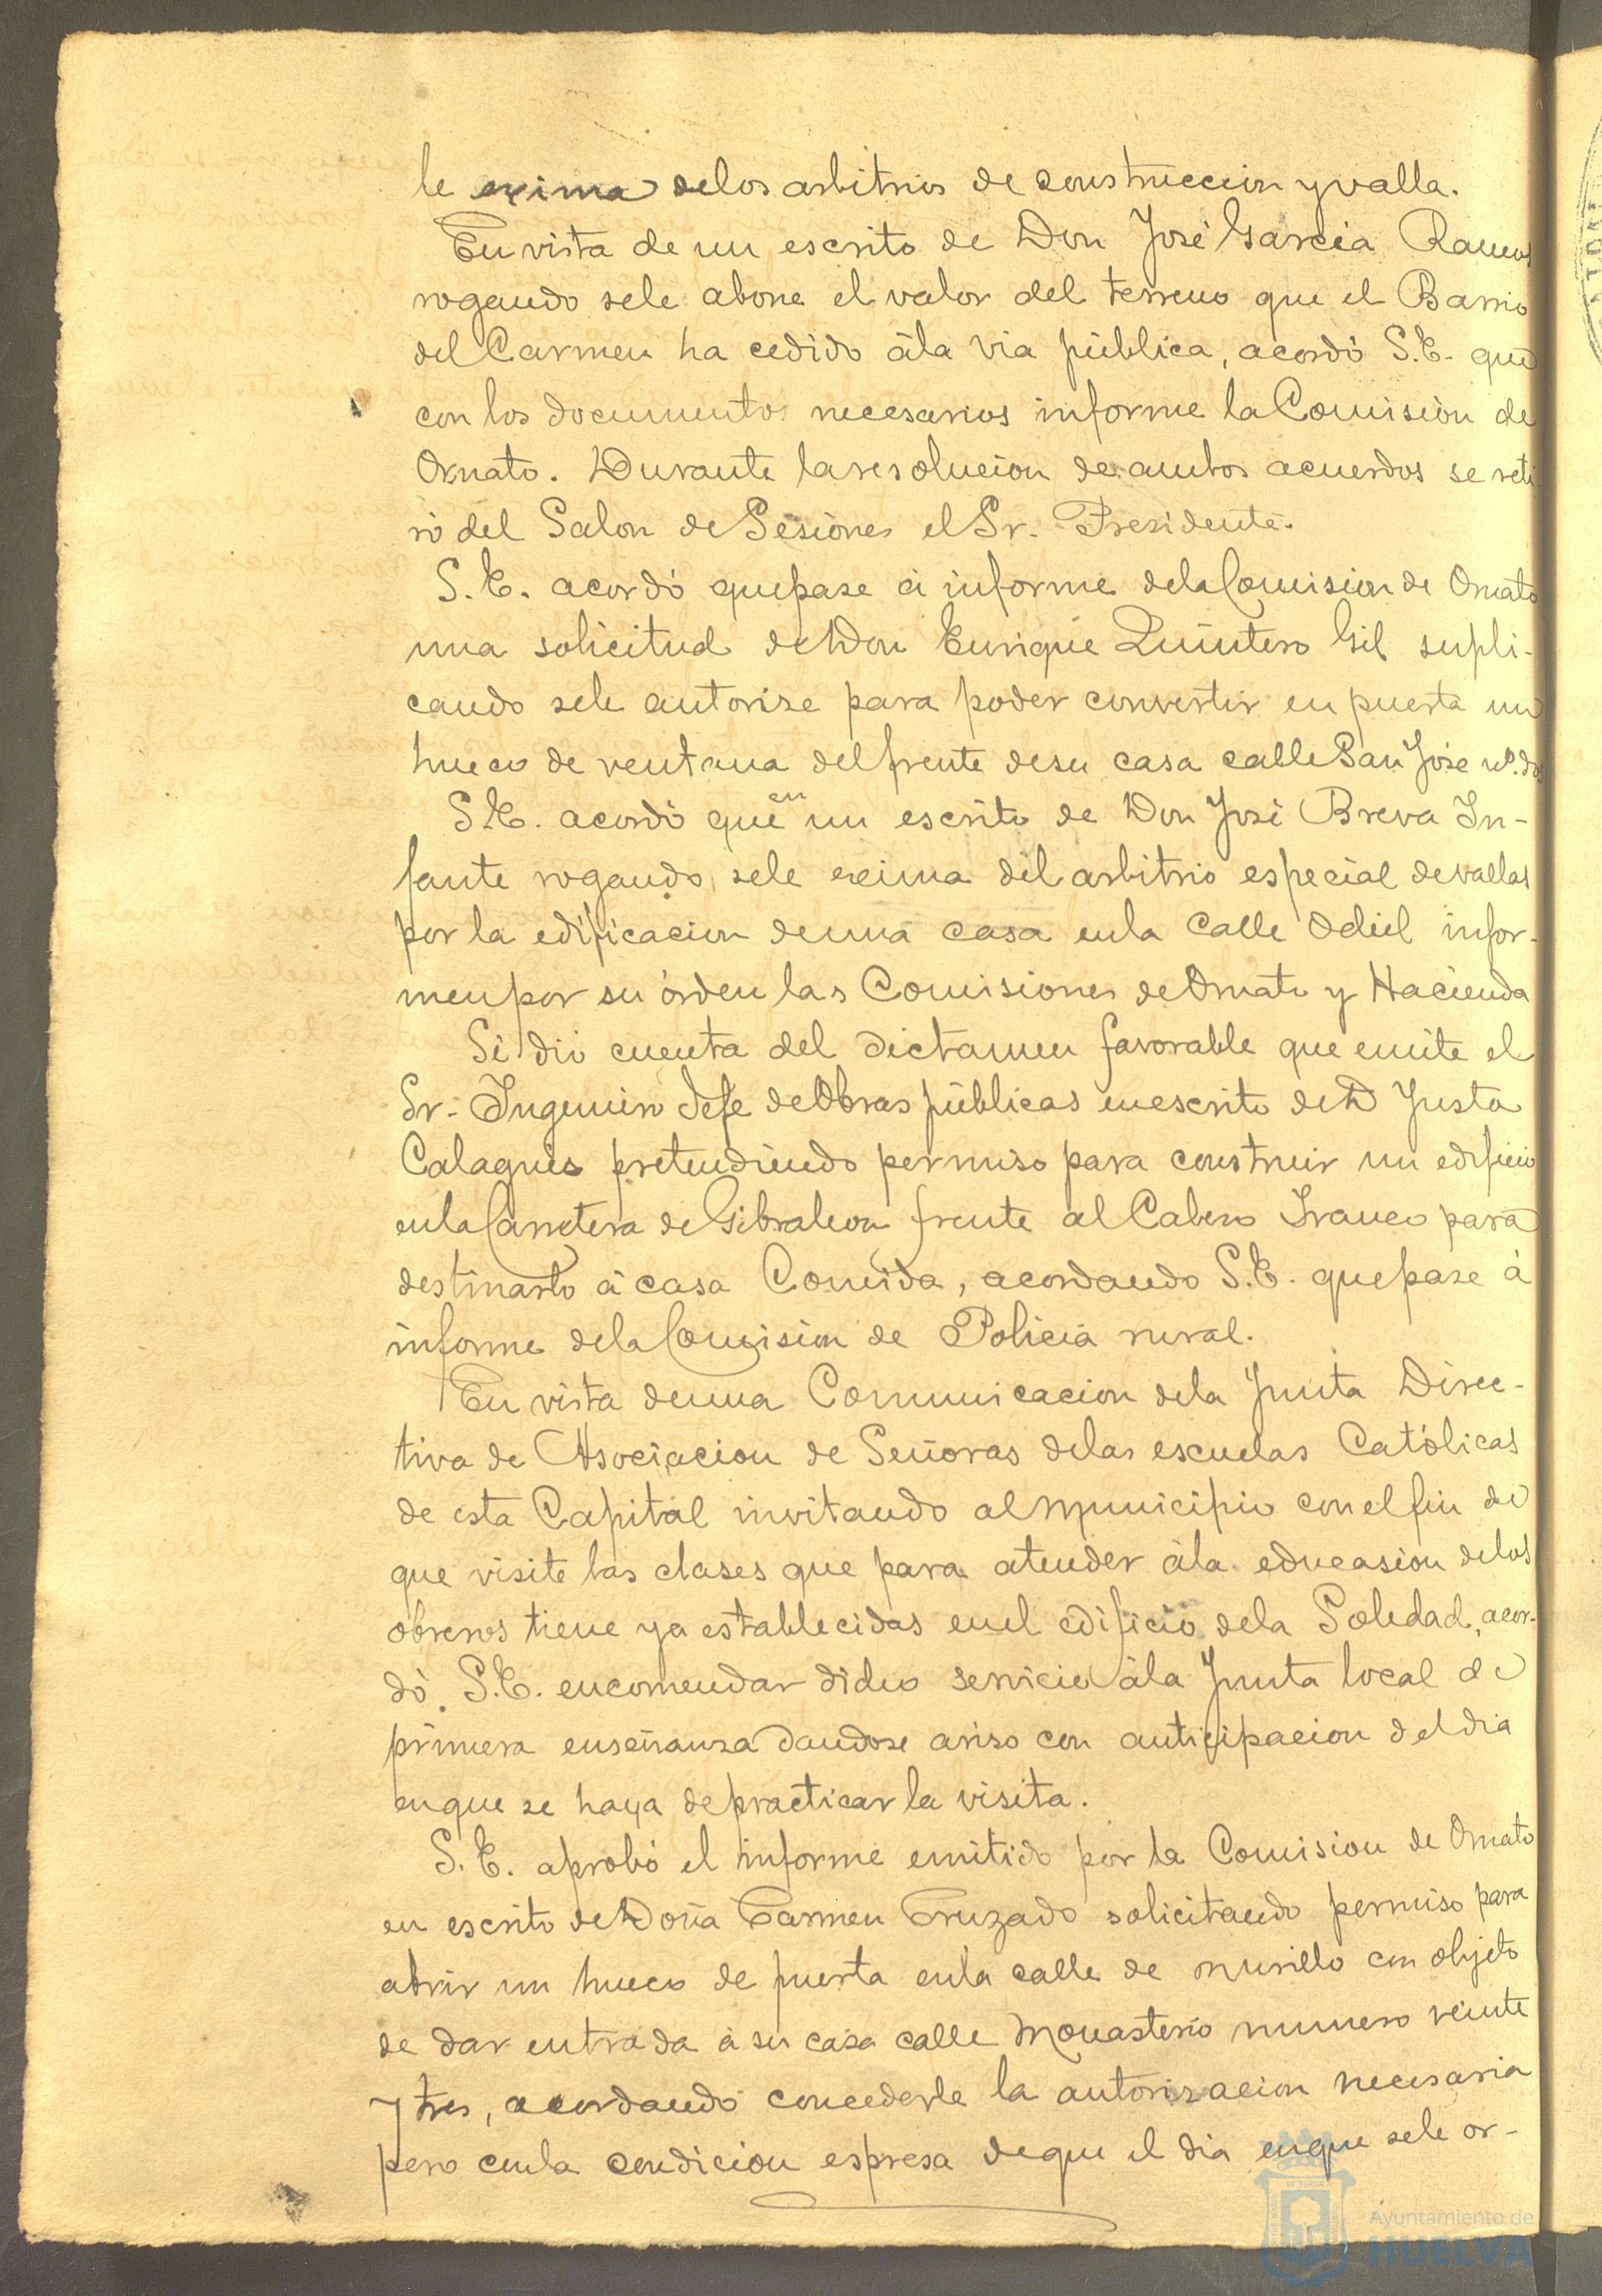 le exima delos arbitrios de construccion y valla.
En vista de un escrito de Don José Garcia Ramos
rogando sele abone el valor del terreno que el Barrio
del Carmen ha cedido ála via pública, acordó S.E. que
con los documentos necesarios informe la Comisión de
Ornato. Durante la resolucion de ambos acuerdos se reti
ró del Salon de Sesiones el Sr. Presidente.
S.E. acordó que pase á informe dela Comision de Ornato
una solicitud de Don Enrique Quintero Gil supli-
cando sele autorize para poder convertir en puerta un
hueco de ventana del frente desu casa calle San José nº. dos
S.E. acordó que en un escrito de Don José Breva In-
fante rogando sele exima del arbitrio especial de vallas
por la edificacion deuna casa enla Calle Odiel infor-
men por su órden las Comisiones de Ornato y Hacienda
Se dió cuenta del dictamen favorable que emite el
Sr. Ingeniero Jefe de Obras públicas en escrito de D Justa
pretendiendo permiso para construir un edificio
enla Carretera de Gibraleon frente al Cabezo para
destinarlo á casa Comida, acordando S.E. que pase á
informe dela Comision de Policía rural.
En vista deuna Comunicacion dela Junta Direc-
tiva de Asociacion de Señoras delas escuelas Católicas
de esta Capital invitando al Municipio con el fin de
que visite las clases que para atender ála educasion delos
obreros tiene ya establecidas enel edificio dela Soledad, acor-
dó S.E. encomendar dicho servicio ála Junta local de
primera enseñanza dandose aviso con anticipacion del dia
enque se haya de practicar la visita.
S.E. aprobó el informe emitido por la Comision de Ornato
en escrito de Doña Carmen Cruzado solicitando permiso para
abrir un hueco de puerta enla calle de Murillo con objeto
de dar entrada á su casa calle Monasterio numero veinte
y tres, acordando concederle la autorizacion necesaria
pero conla condicion espresa deque el dia enque sele or-
Ayuntamiento de
HUELVA